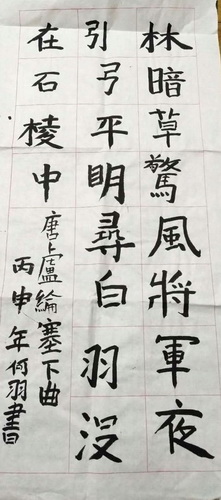 林暗草驚風將軍夜
引弓平明尋白羽没
在石棱中
唐卢盧綸塞下曲
丙申年何羽書